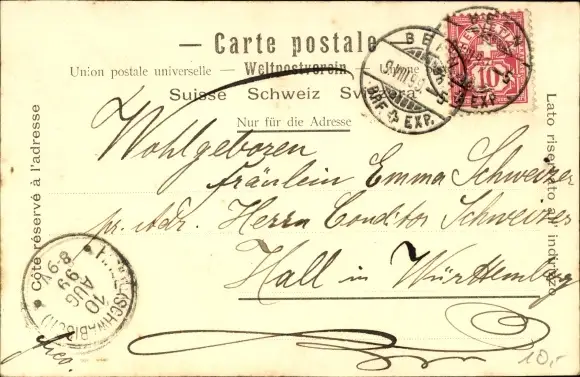 — Carte postale —
Union postale universelle — Weltpostverein — Unione
Suisse Schweiz Svizzera
Nur für die Adresse
Côté réservé à l'adresse
Lato riservato all' indirizzo
BERN
BRF. EXP.
HELVETIA
10
Wohlgeboren
Fräulein Emma Schweizer
pr. Adr. Herrn Conditor Schweizer
Hall in Württemberg
10 AUG 99
(SCHWÄBISCH)
10,-